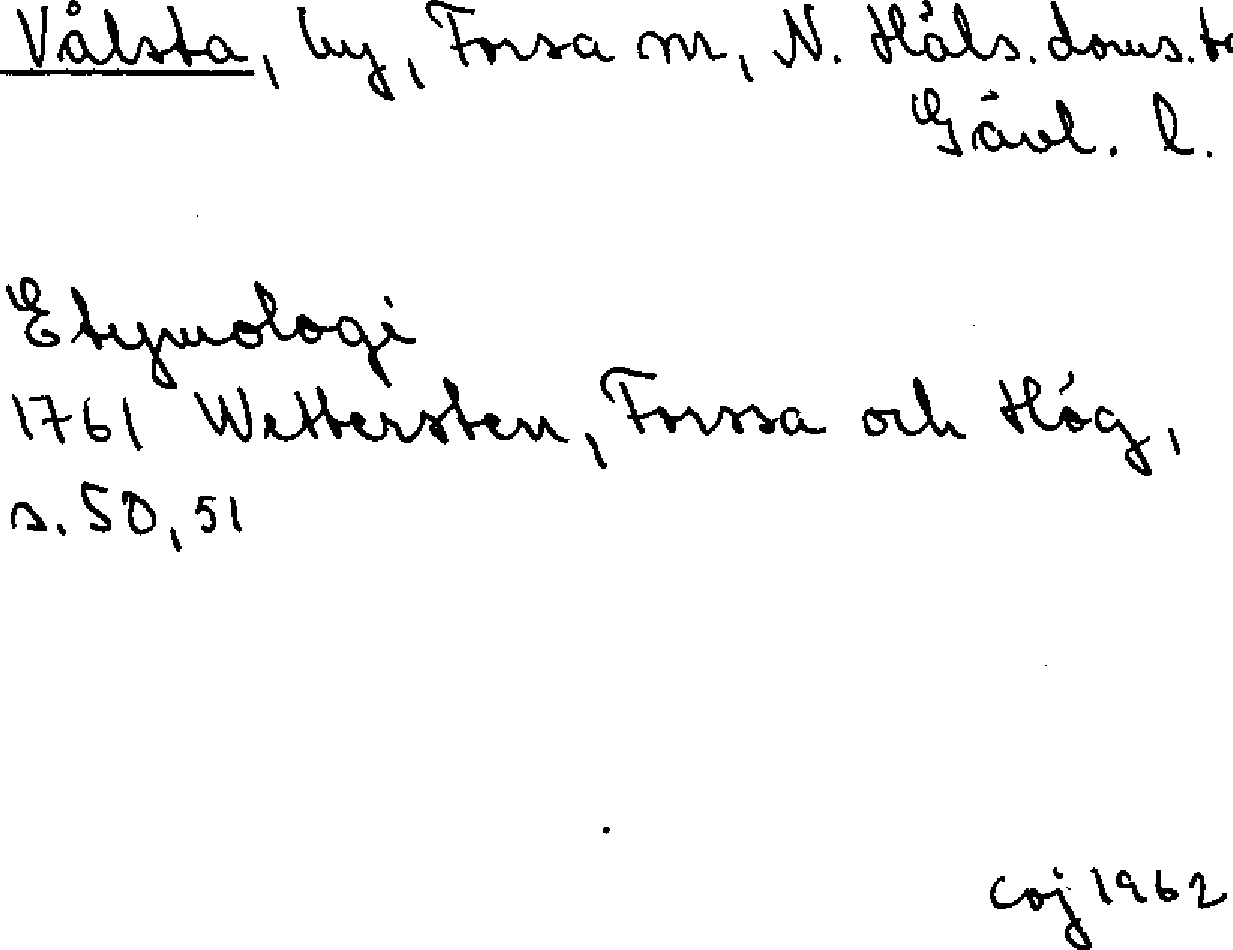 Vålsta, by, Forsa sn, N. Häls. doms.
Gävl. l.
Etymologi
1761 Wettersten, Forssa och Hög,
s. 50, 51
Coj 1962